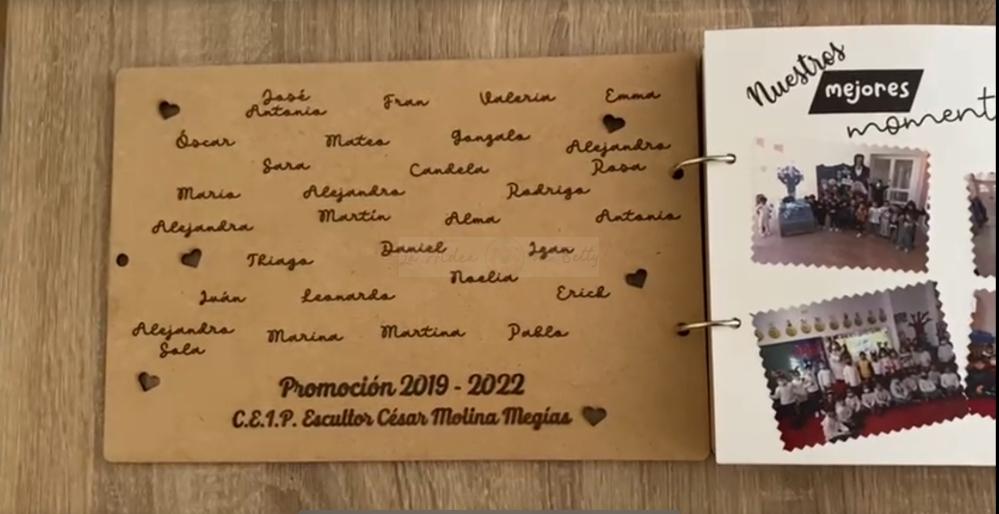 José Antonio
Fran
Valeria
Emma
Óscar
Mateo
Gonzalo
Alejandro Rosa
Sara
Candela
Mario
Alejandro
Rodrigo
Alejandra
Martín
Alma
Antonio
Thiago
Daniel
Izan
Noelia
Iván
Leonardo
Erick
Alejandro Sola
Marina
Martina
Pablo
Promoción 2019 - 2022
C.E.I.P. Escultor César Molina Megías
Nuestros
mejores
moment